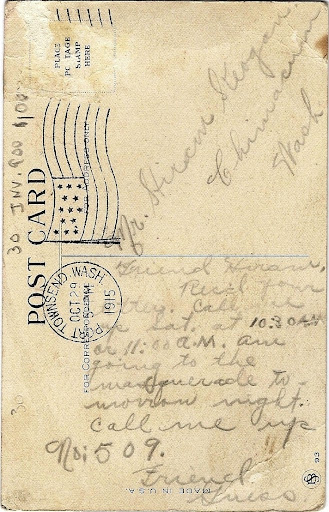 PLACE
POSTAGE
STAMP
HERE
POST CARD
FOR CORRESPONDENCE
TOWNSEND, WASH.
OCT 29
1915
30 INV. 900
Mr. Hiram
Chimacum
Wash
Friend Hiram,
Rec'd your
letter. Call me
up Sat. at 10:30 A.M
or 11:00 A.M. am
going to the
masquerade to-
morrow night.
Call me up
No: 509.
Friend
Guess.
MADE IN U.S.A.
93